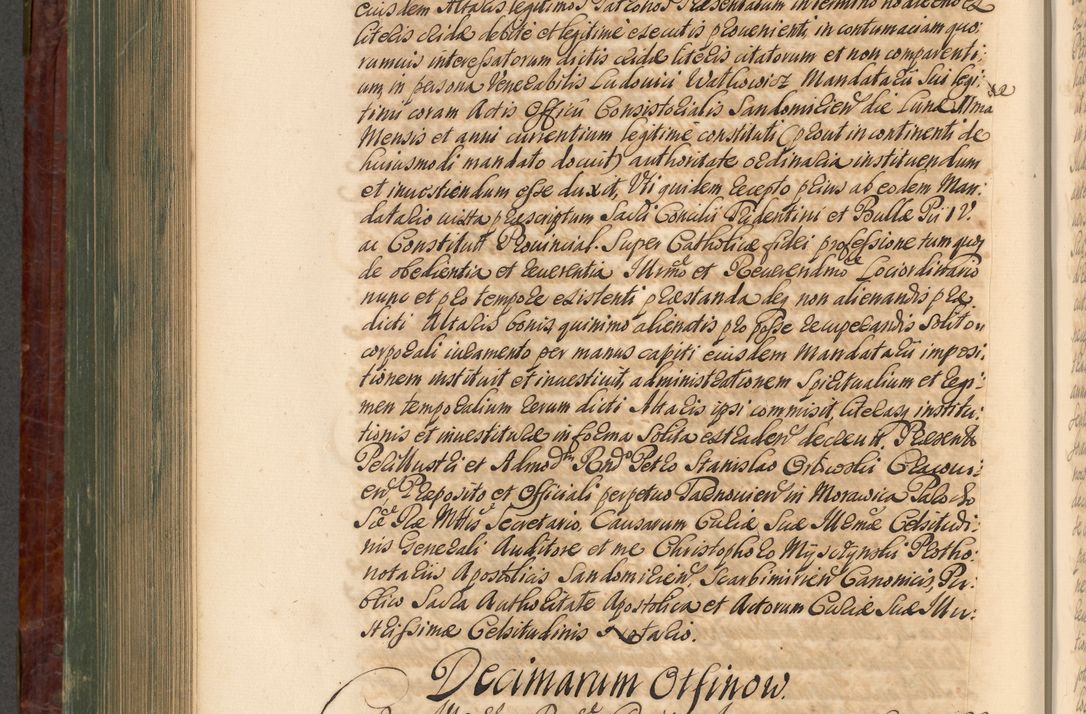 eiusdem Altaris legitimos Patronos Praesentatum in termino
literis eiusdem debite et legitime executis provenienti, in contumaciam quo-
rumvis interessatorum dictis eisdem literis citatorum et non comparenti-
um, in persona Venerabilis Ludovici Wathowicz Mandatarii sui legi-
timi coram Actis Officii Consistorialis Sandomirien die Lunae
Mensis et anni currentium legitime constituti (prout in continenti de
huiusmodi mandato docuit) authoritate ordinaria instituendum
et investiendum esse duxit, Uti quidem recepto prius ab eodem Man-
datario iuxta praescriptum Sacri Concilii Tridentini et Bullae Pii IV.
ac Constitutt Provincial. super Catholicae fidei professione tum quoq
de obedientia et reverentia Illrmo et Reverendmo Lociordinario
nunc et pro tempore existenti praestanda deq non alienandis prae-
dicti Altaris bonis quinimo alienatis pro posse recuperandis solito
corporali iuramento per manus capiti eiusdem Mandatarii imposi-
tionem instituit et investivit, administrationem Spiritualium et regi-
men temporalium rerum dicti Altaris ipsi commisit, literasq institu-
tionis et investiturae in forma solita extraden decrevit. Praesente
Perillustri et Admodm Rndo Petro Stanislao Orłowski Cracovi-
en, Praeposito et Officiali perpetuo Tarnovien in Morawica Parocho
Scae Rae Mttis Secretario, Causarum Curiae Suae Illrmae Celsitudi-
nis Generali Auditore et me Christophoro Myszczynski Protho-
notariis Apostolicis Sandomirien, Scarbimirien Canonicis, Pu-
blico Sacra Authoritate Apostolica et Actorum Curiae Suae Illu-
strissimae Celsitudinis Notario.
Decimarum Otfinow.